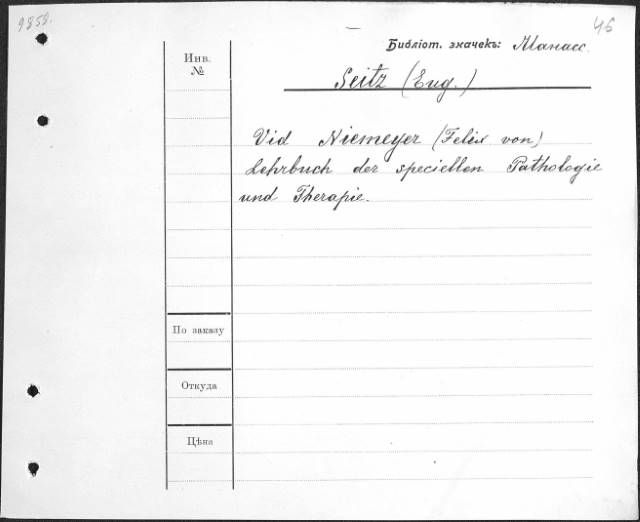 9858.
46
Библіот. значекъ: Манасс.
Инв.
№
Seitz (Eug.)
Vid Niemeyer (Felix von)
Lehrbuch der speciellen Pathologie
und Therapie.
По заказу
Откуда
Цѣна